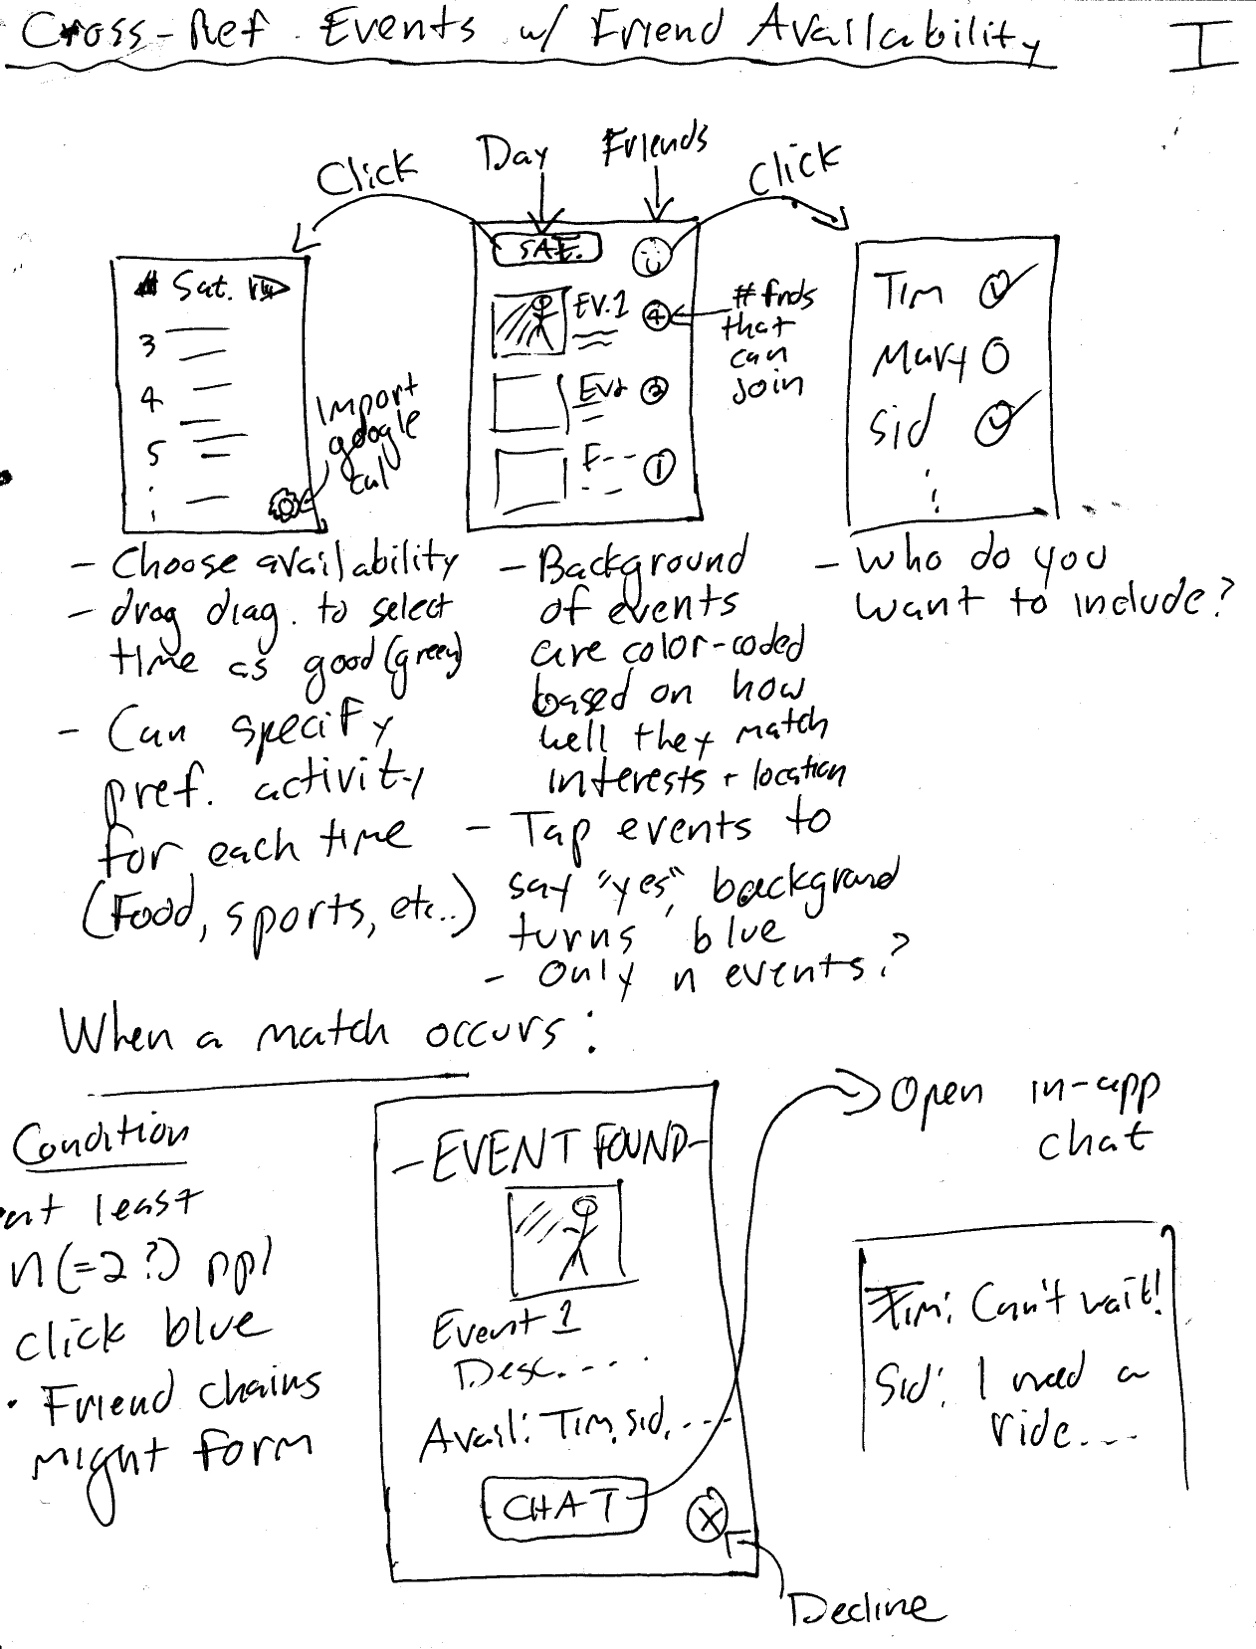 Cross-Ref Events w/ Friend Availability
I
Click
Day
Friends
Click
Sat.
3
4
5
Import
google
cal
SAT.
EV.1
4
EV2
2
E---
1
# frnds
that
can
join
Tim
Mary
Sid
- Choose availability
- drag diag. to select
time as good (green)
- Can specify
pref. activity
for each time
(Food, sports, etc..)
- Background
of events
are color-coded
based on how
well they match
interests + location
- Tap events to
say "yes", background
turns blue
- Only n events?
- Who do you
want to include?
When a match occurs:
Condition
• at least
n(=2?) ppl
click blue
• Friend chains
might form
- EVENT FOUND -
Event 1
Desc. ...
Avail: Tim, Sid, ...
CHAT
X
Decline
Open in-app
chat
Tim: Can't wait!
Sid: I need a
ride...